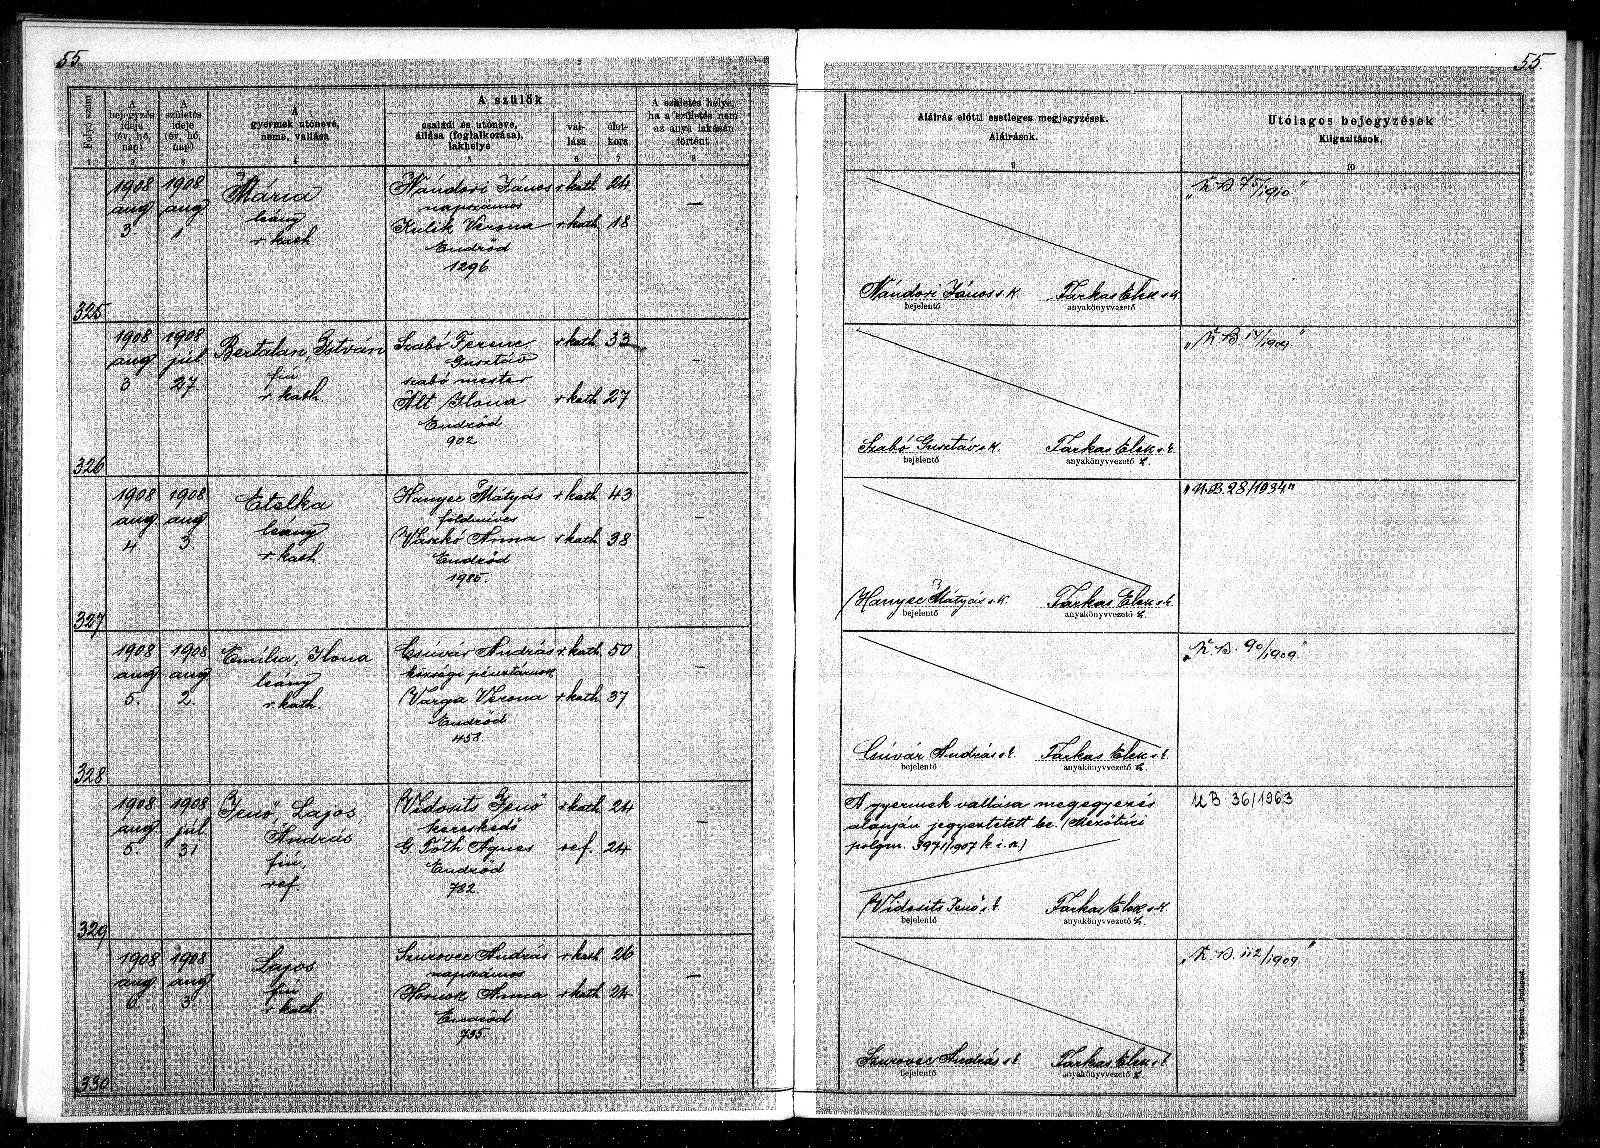 55.
55.
Folyó szám
A bejegyzés ideje (év, hó, nap)
A születés ideje (év, hó, nap)
A gyermek utóneve, neme, vallása
A szülők
családi és utóneve, állása (foglalkozása), lakhelye
vallása
életkora
A születés helye, ha a születés nem az anya lakásán történt
Aláírás előtti esetleges megjegyzések.
Aláírások.
Utólagos bejegyzések
Kiigazítások.
1 2 3 4 5 6 7 8 9 10
325
1908 aug 3
1908 aug 1
Mária
leány
r. kath
Nándori János r kath 24
napszámos
Kulik Verona r kath 18
Endrőd
1296.
—
Nándori János s. k.
bejelentő
Farkas Elek s. k.
anyakönyvvezető
"N. B. 75/1910"
326
1908 aug 3
1908 júl 27
Bertalan, István
fiú
r. kath.
Szabó Ferenc r kath 33
Gusztáv
szabó mester
Alt Ilona r kath 27
Endrőd
902
—
Szabó Gusztáv s. k.
bejelentő
Farkas Elek s. k.
anyakönyvvezető h.
"N B 14/1909"
327
1908 aug 4
1908 aug 3
Etelka
leány
r. kath.
Hanyec Mátyás r kath 43
földmíves
Vaskó Anna r kath 38
Endrőd
1985.
—
Hanyec Mátyás s. k.
bejelentő
Farkas Elek s. k.
anyakönyvvezető h.
"U. B. 28/1934"
328
1908 aug 5.
1908 aug 2.
Emília, Ilona
leány
r. kath.
Csúvár András r. kath 50
községi pénztárnok
Varga Verona r kath 37
Endrőd
458.
—
Csúvár András s. k.
bejelentő
Farkas Elek s. k.
anyakönyvvezető h.
"N. B. 90/1909"
329
1908 aug 5.
1908 júl 31
Jenő, Lajos
András
fiú,
ref.
Vidosits Jenő r kath 24
kereskedő
G. Tóth Ágnes ref. 24
Endrőd
782.
—
A gyermek vallása megegyezés
alapján jegyeztetett be. (Mezőtúri
polgm. 3971/907 k i. a.)
Vidosits Jenő s. k.
bejelentő
Farkas Elek s. k.
anyakönyvvezető h.
UB 36/1963
330
1908 aug 6
1908 aug 3
Lajos
fiú
r. kath
Szurovec András r kath 26
napszámos
Hornok Anna r kath 24
Endrőd
735.
—
Szurovec András s. k.
bejelentő
Farkas Elek s. k.
anyakönyvvezető h.
"N. B. 112/1909"